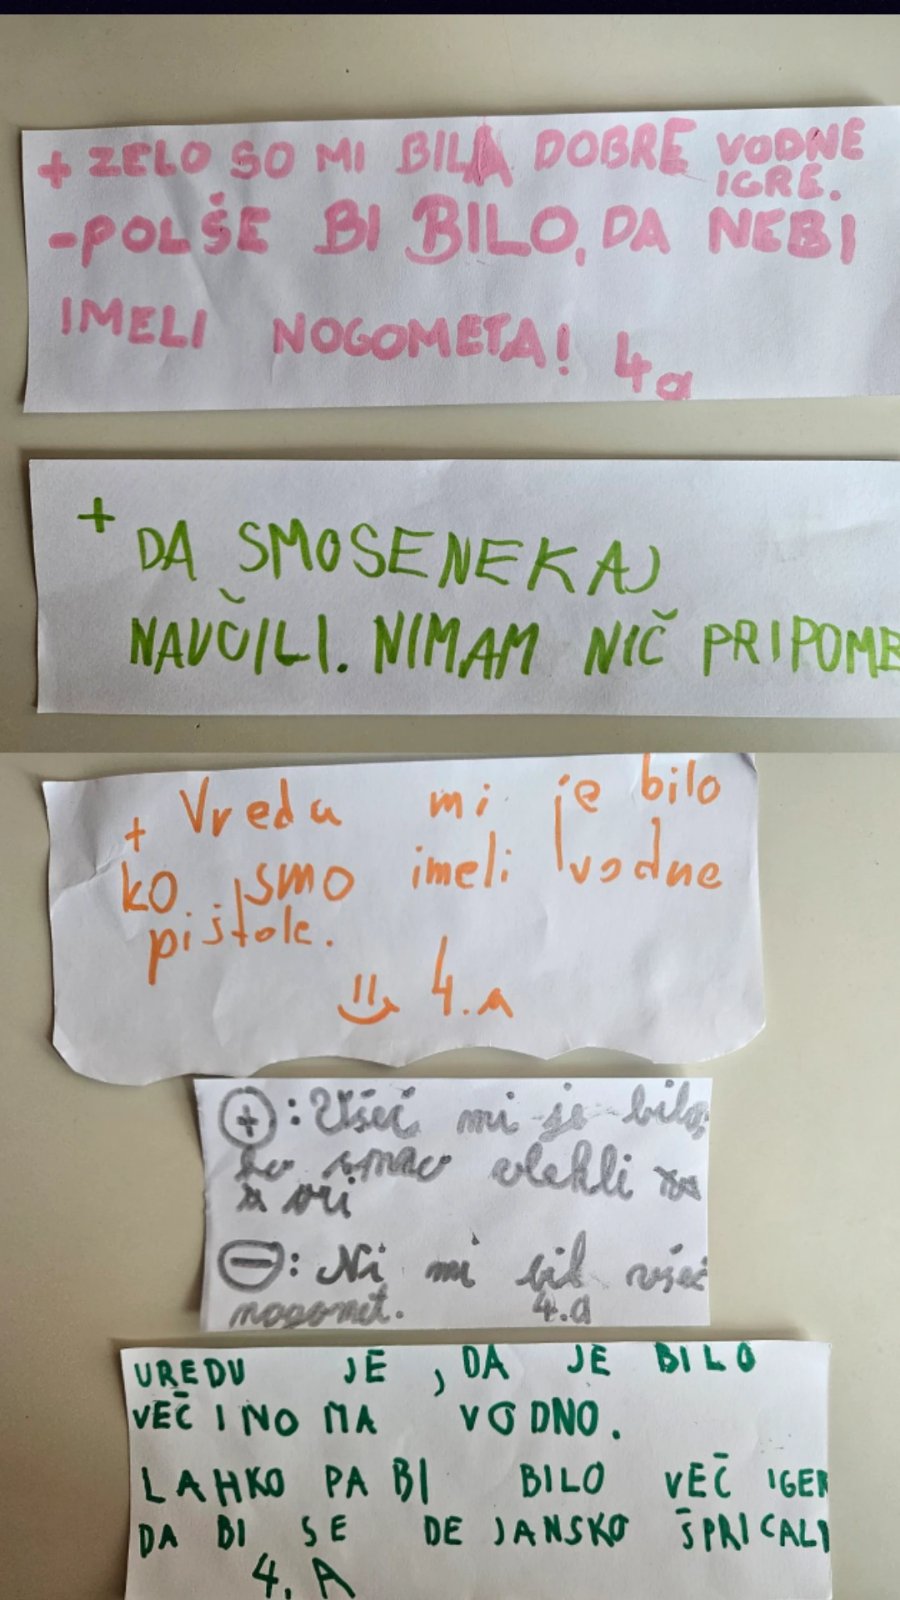 + ZELO SO MI BILA DOBRE VODNE
IGRE.
-POLŠE BI BILO, DA NEBI
IMELI NOGOMETA! 4a
+
DA SMOSENEKAJ
NAVČILI. NIMAM NIČ PRIPOMB
+ Vredu mi je bilo
ko smo imeli vodne
pištole.
4.a
+: Všeč mi je bilo,
ko smo vlekli
vri
-: Ni mi bil všeč
nogomet. 4.a
UREDU JE, DA JE BILO
VEČINOMA VODNO.
LAHKO PA BI BILO VEČ IGER
DA BI SE DEJANSKO ŠPRICALI
4. A